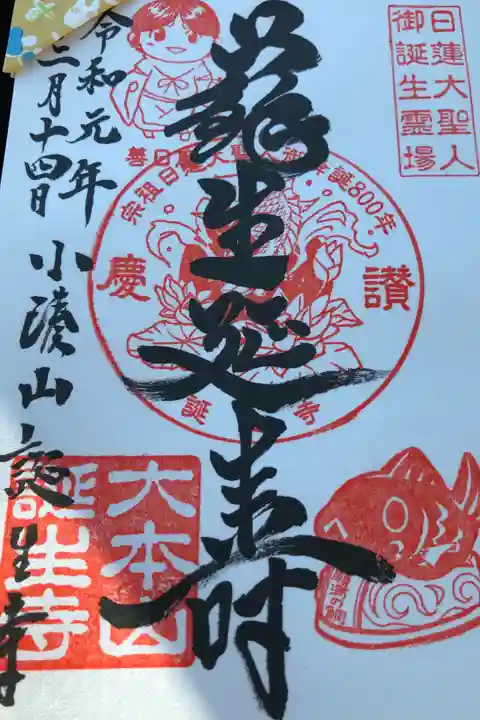 日蓮大聖人
御誕生霊場
蘇生延壽
宗祖日蓮大聖人御降誕800年
慶讃
令和元年
月十四日
小湊山誕生寺
大本山
誕生寺